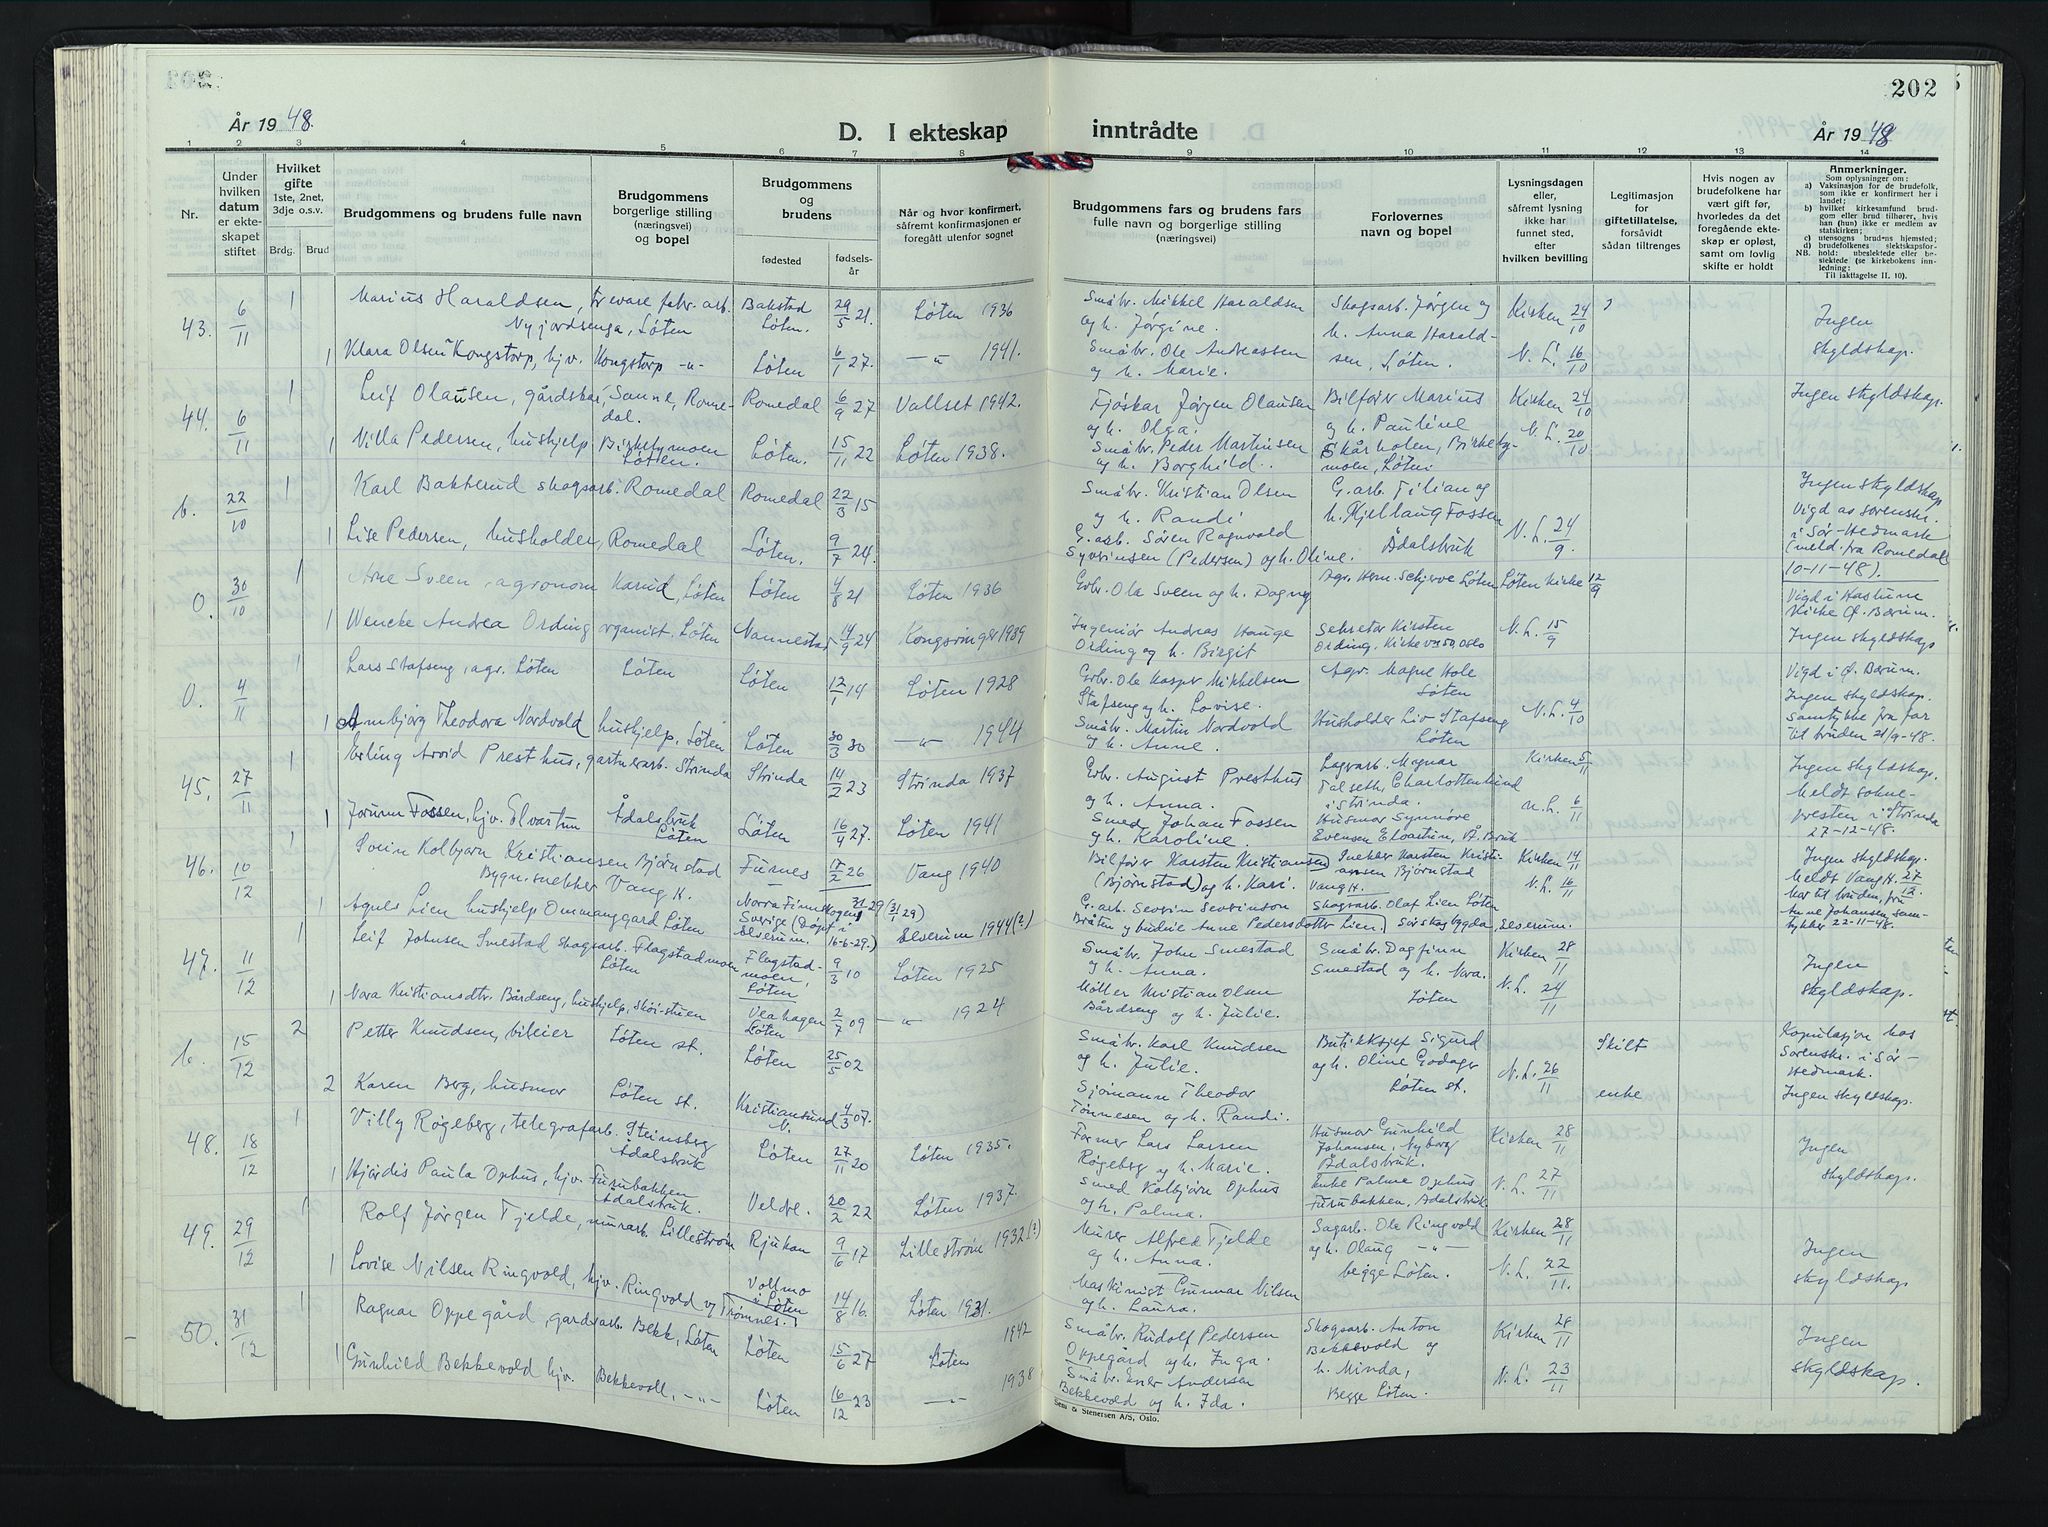 202
År 1948.
D. I ekteskap inntrådte
År 1948
1 2 3 4 5 6 7 8 9 10 11 12 13 14
Nr.
Under hvilken datum er ekteskapet stiftet
Hvilket gifte 1ste, 2net, 3dje o.s.v.
Brdg. Brud
Brudgommens og brudens fulle navn
Brudgommens borgerlige stilling (næringsvei) og bopel
Brudgommens og brudens
fødested
fødselsår
Når og hvor konfirmert, såfremt konfirmasjonen er foregått utenfor sognet
Brudgommens fars og brudens fars fulle navn og borgerlige stilling (næringsvei)
Forlovernes navn og bopel
Lysningsdagen eller, såfremt lysning ikke har funnet sted, efter hvilken bevilling
Legitimasjon for giftetillatelse, forsåvidt sådan tiltrenges
Hvis nogen av brudefolkene har vært gift før, hvorledes da det foregående ekteskap er opløst, samt om lovlig skifte er holdt
Anmerkninger.
Som oplysninger om:
a) Vaksinasjon for de brudefolk, som ikke er konfirmert her i landet;
b) hvilket kirkesamfund brudgom eller brud tilhører, hvis han (hun) ikke er medlem av statskirken;
c) utensogns brudens hjemsted;
d) brudefolkenes slektskapsforhold: ubeslektede eller beslektede (se kirkebokens innledning;
NB. Til iakttagelse II, 10).
43. 6/11 1 Marius Haraldsen, trevarefabr. arb. Nyjordsenga, Løten Bakstad Løten. 29/5 21. Løten 1936 Småbr. Mikkel Haraldsen og h. Jørgine. Skogsarb. Jørgen og h. Anna Haraldsen, Løten. Kirken 24/10 Ingen skyldskap.
1 Klara Olsen Kongstorp, hjv. Kongstorp -"- Løten 6/1 27. -"- 1941. Småbr. Ole Andreassen og h. Marie. N. L. 16/10
44. 6/11 1 Leif Olausen, gårdskar, Sanne, Romedal. Romedal 6/9 27 Vallset 1942. Fjøskar Jørgen Olausen og h. Olga. Bilfører Marius og h. Pauline Skårholen, Birkebymoen, Løten. Kirken 24/10 Ingen skyldskap.
1 Villa Pedersen, hushjelp Birkebymoen Løten. Løten. 15/11 22 Løten 1938. Småbr. Peder Martinsen og h. Borghild. N. L. 20/10
b. 22/10 1 Karl Bakkerud skogsarb. Romedal Romedal 22/3 15 Småbr. Kristian Olsen og h. Randi G. arb. Tilian og h. Kjellaug Fossen Ådalsbruk N. L. 24/9. Ingen skyldskap Vigd av sorenskr. i Sør-Hedmark (meld. fra Romedal 10-11-48).
1 Lise Pedersen, husholder, Romedal Løten. 9/7 24. G. arb. Søren Ragnvold Syversinsen (Pedersen) og h. Oline.
0. 30/10 1 Arne Sveen, agronom Karud, Løten Løten 4/8 21 Løten 1936 Grbr. Ola Sveen og h. Dagny Agr. Hem. Schjerve Løten Løten kirke 12/9 Vigd i Haslum Kirke Ø. Bærum.
1 Wencke Andrea Ording organist, Løten Nannestad 14/9 24 Kongsvinger 1939 Ingeniør Andreas Hauge Ording og h. Birgit Sekretær Kirsten Ording, Kirkevn 50, Oslo N. L. 15/9 Ingen skyldskap
0. 4/11 1 Lars Stafseng, agr. Løten Løten Løten 12/1 14 Løten 1928 Grbr. Ole Kasper Mikkelsen Stafseng og h. Lovise. Agr. Magne Hole Løten Vigd i Ø. Bærum. Ingen skyldskap. Samtykke fra far til bruden 21/9-48.
1 Annbjørg Theodora Nordvold hushjelp, Løten Løten 30/3 30 -"- 1944 Småbr. Martin Nordvold og h. Anne. Husholder Liv Stafseng Løten N. L. 4/10
45. 27/11 1 Erling Arvid Presthus, gartnerarb. Strinda Strinda 14/2 23 Strinda 1937 Grbr. August Presthus og h. Anna. Lagerarb. Magnar Falseth, Charlottenlund i Strinda. Kirken 5/11 Ingen skyldskap. Meldt sokneprest­en i Strinda 27-12-48.
1 Jorunn Fossen, hjv. Elvartun Ådalsbruk Løten Løten 16/9 27. Løten 1941 Smed Johan Fossen og h. Karoline. Husmor Synnøve Evensen Elvartun, Å. Bruk N. L. 6/11
46. 10/12 1 Svein Kolbjørn Kristiansen Bjørnstad Bygn. snekker Vang H. Furnes 17/2 26 Vang 1940 Bilfører Karsten Kristiansen (Bjørnstad) og h. Kari. Snekker Karsten Kristiansen Bjørnstad Vang H. Kirken 14/11 Ingen skyldskap. Meldt Vang H. 27/12.
1 Agnes Lien hushjelp Ommanggard Løten Norra Finnskogen Sverige (Døpt i Elverum. 16-6-29.) 31/1 29 (31/1 29) Elverum 1944 (?) G. arb. Severin Severinson Bråten og hustru Anne Pedersdotter Lien. Skogsarb. Olaf Lien Løten Sørskogbygda, Elverum. N. L. 16/11 Mor til bruden, fru Anne Johansen, samtykker 22-11-48.
47. 11/12 1 Leif Johnsen Smestad skogsarb. Flagstadmoen Løten Flagstadmoen, Løten 9/3 10 Løten 1925 Småbr. John Smestad og h. Anna. Småbr. Dagfinn Smestad og h. Nora. Løten Kirken 28/11 Ingen skyldskap.
1 Nora Kristiansdtr. Bårdseng, hushjelp, Skøi-stuen Veahagen Løten 2/7 09 -"- 1924 Møller Kristian Olsen Bårdseng og h. Julie. N. L. 24/11
b. 15/12 2 Petter Knudsen, bileier Løten st. Løten 25/5 02 Småbr. Karl Knudsen og h. Julie. Butikksjef Sigurd og h. Oline Godager Løten st. N. L. 26/11 Skilt Kopulasjon hos Sorenskr. i Sør-Hedmark.
2 Karen Berg, husmor Løten st. Kristiansund N. 4/3 07. Sjømann Theodor Tønnesen og h. Randi. enke Ingen skyldskap.
48. 18/12 1 Villy Røgeberg, telegrafarb. Steinsberg Ådalsbruk Løten 27/11 20 Løten 1935. Former Lars Larsen Røgeberg og h. Marie. Husmor Gunhild Johansen, Nyborg Ådalsbruk. Kirken 28/11 Ingen skyldskap.
1 Hjørdis Paula Ophus, hjv. Furubakken Ådalsbruk. Veldre. 20/2 22 Løten 1937. Smed Kolbjørn Ophus og h. Palma. Enke Palma Ophus Furubakken, Ådalsbruk. N. L. 27/11
49. 29/12 1 Rolf Jørgen Tjelde, murarb. Lillestrøm Rjukan 9/6 17 Lillestrøm 1932 (?) Murer Alfred Tjelde og h. Anna. Sagarb. Ole Ringvold og h. Olaug -"- begge Løten. Kirken 28/11 Ingen skyldskap
1 Lovise Nilsen Ringvold, hjv. Ringvold v/ Trømnes. Vollmo i Løten 14/8 16. Løten 1931. Maskinist Gunnar Nilsen og h. Laura. N. L. 22/11.
50. 31/12 1 Ragnar Oppegård, gardsarb. Bekk, Løten Løten 15/6 27 Løten 1942 Småbr. Rudolf Pedersen Oppegård og h. Inga. Skogsarb. Anton Bekkevold og h. Minda, Begge Løten. Kirken 28/11 Ingen skyldskap.
1 Gunhild Bekkevold hjv. Bekkevoll, -"- Løten 16/12 23 -"- 1938 Småbr. Ener Andersen Bekkevold og h. Ida. N. L. 23/11
Sem & Stenersen A/S, Oslo.